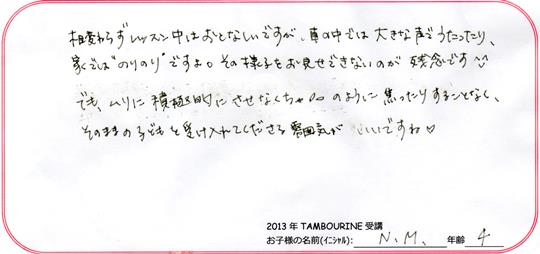 相変わらずレッスン中はおとなしいですが、車の中では大きな声でうたったり、
家では"のりのり"ですよ。その様子をお見せできないのが残念です
でも、ムリに積極的にさせなくちゃ…のように焦ったりすることなく、
そのままの子どもを受け入れてくださる雰囲気がいいですね♡
2013 年 TAMBOURINE 受講
お子様の名前(イニシャル): N.M. 年齢 4